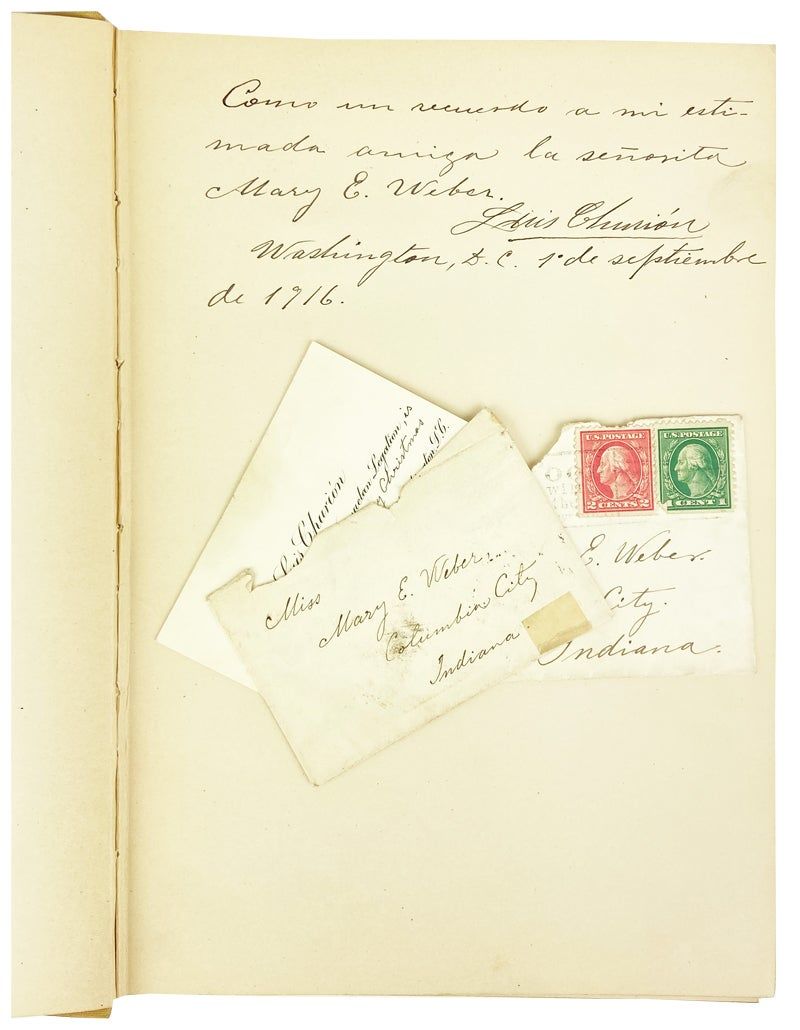 Como un recuerdo a mi esti-
mada amiga la señorita
Mary E. Weber.
Luis Churión
Washington, D. C. 1º de septiembre
de 1916.
Luis Churión
Legation, is
Christmas
D.C.
U.S. POSTAGE
2 CENTS 2
U.S. POSTAGE
1 CENT 1
Miss
Mary E. Weber
Columbia City
Indiana
E. Weber.
City.
Indiana.